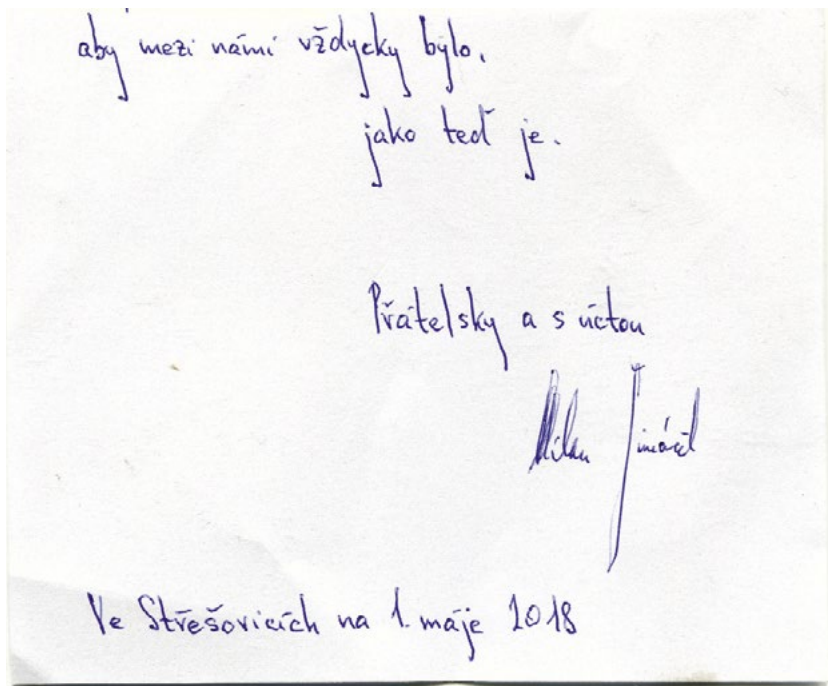 aby mezi námi vždycky bylo,
jako teď je.
Přátelsky a s úctou
Milan
Ve Střešovicích na 1. máje 2018